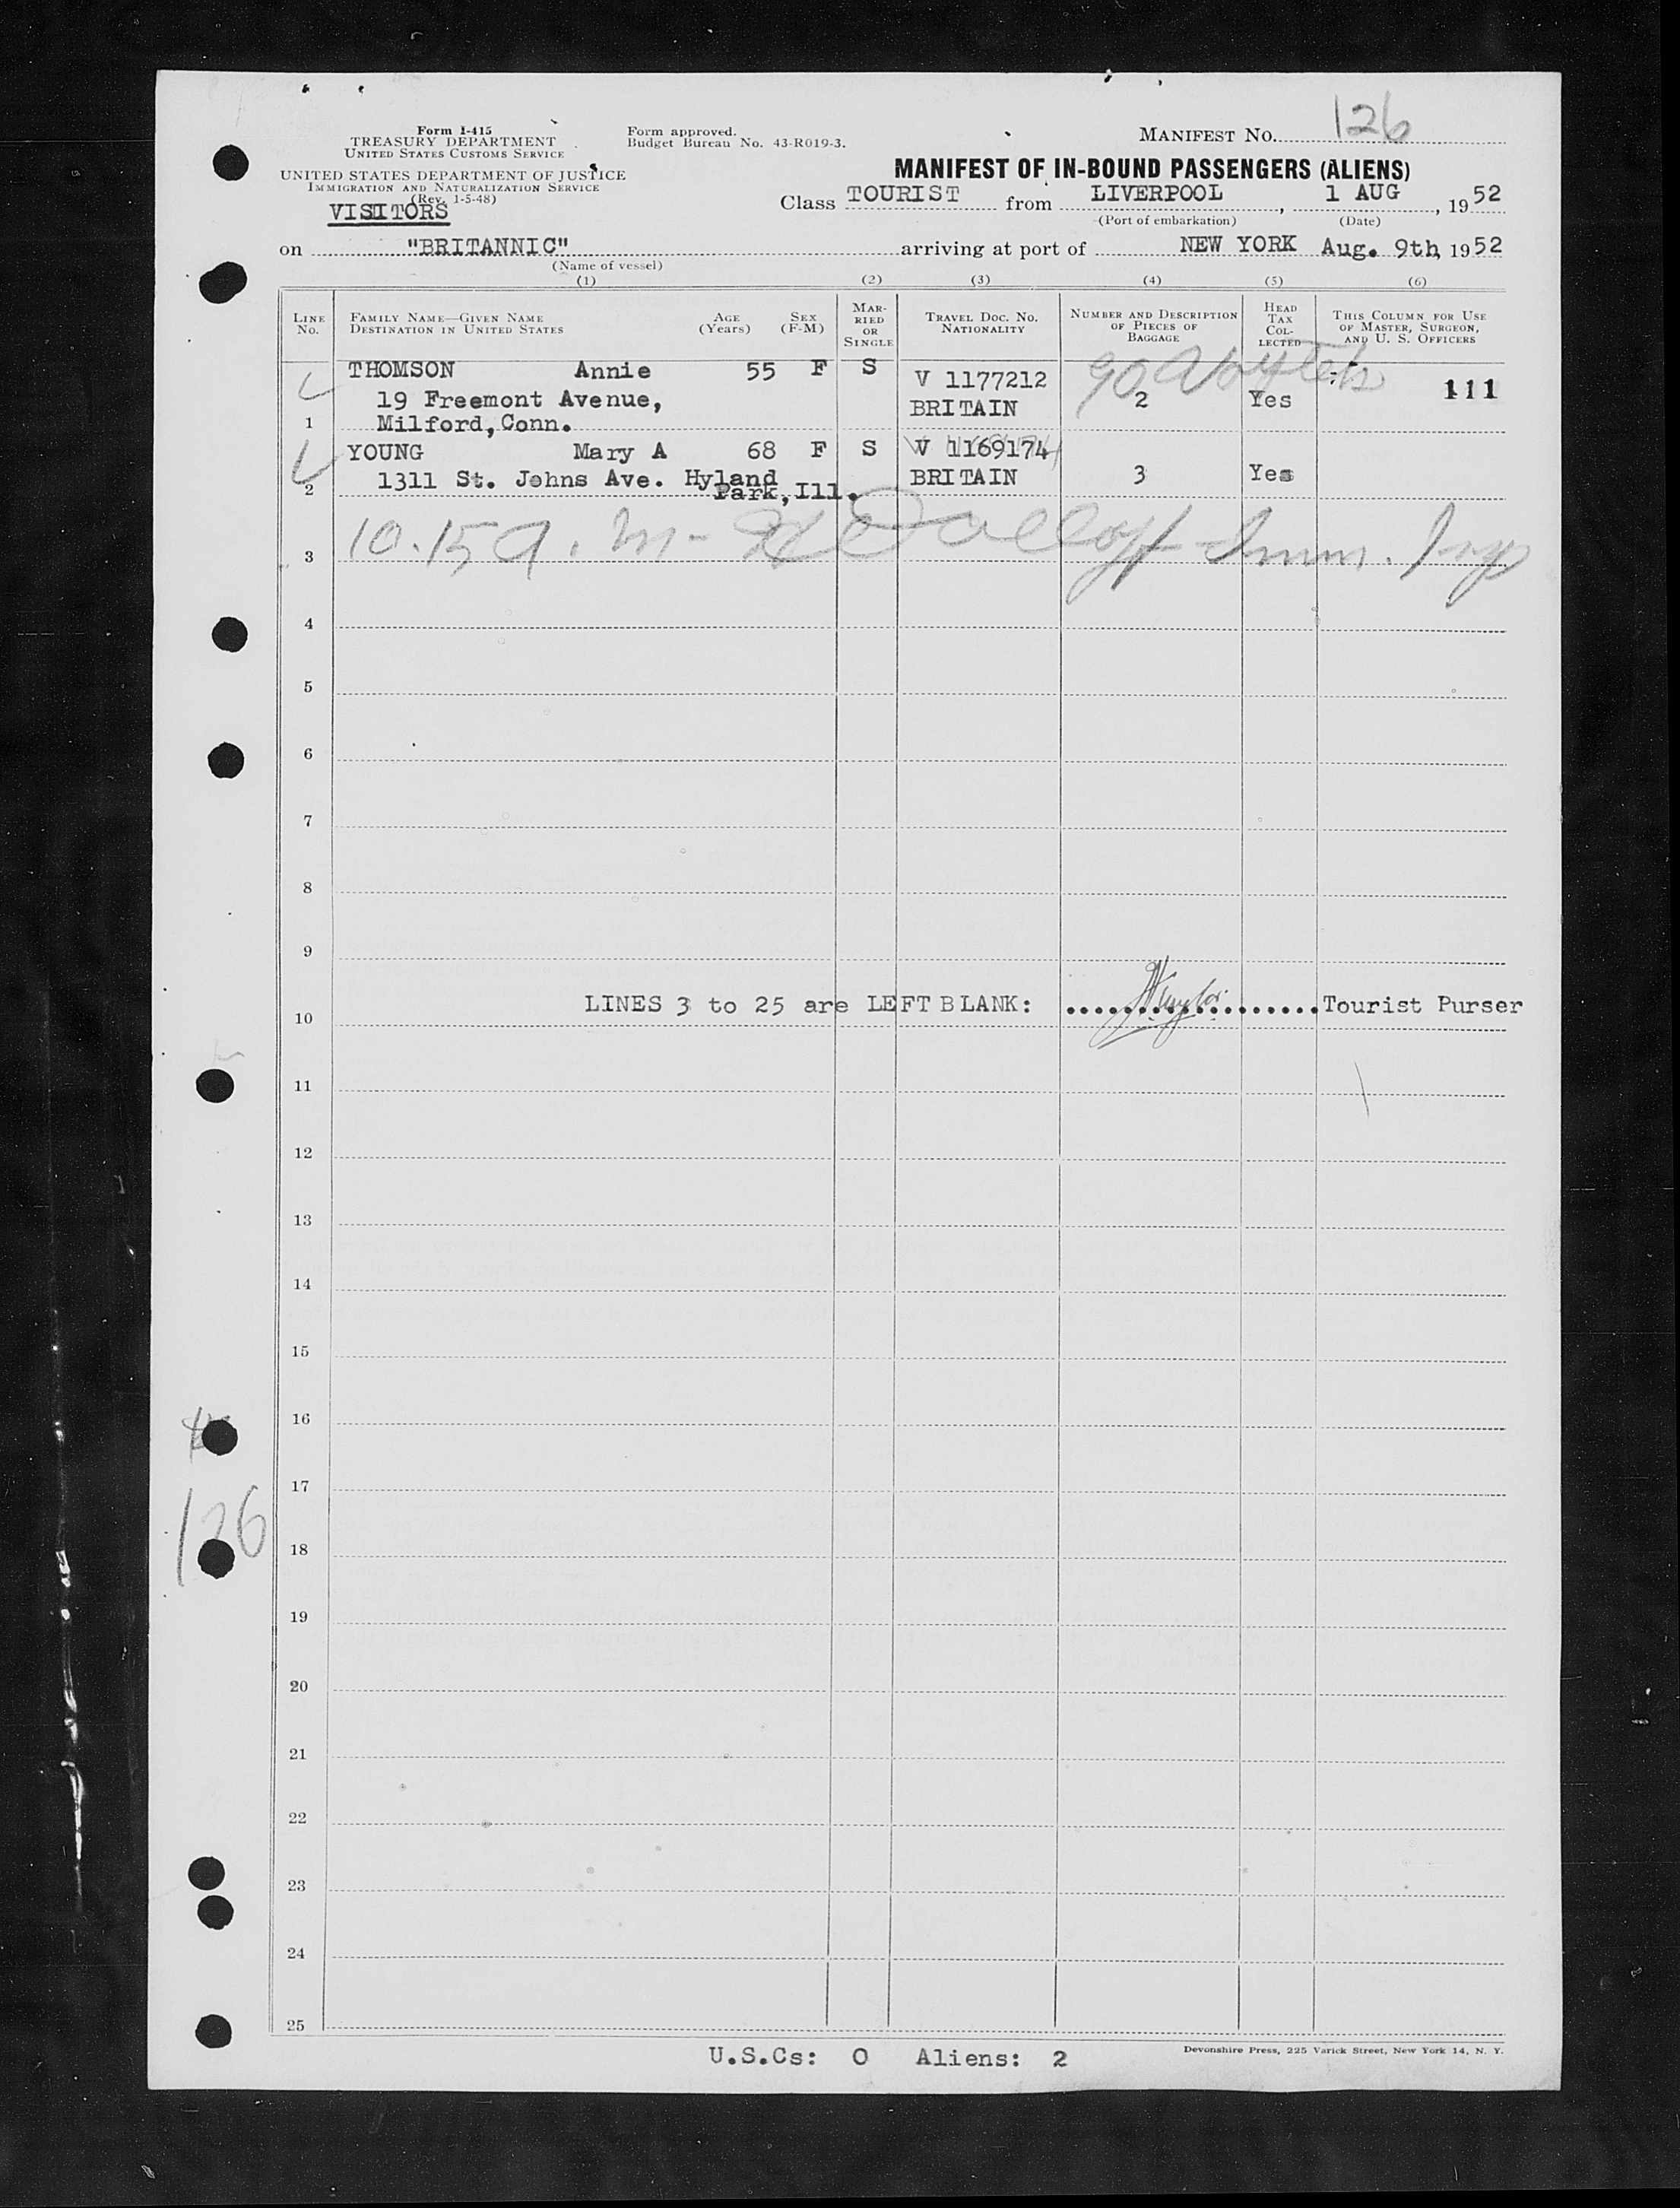 126
Form I-415
TREASURY DEPARTMENT
UNITED STATES CUSTOMS SERVICE
UNITED STATES DEPARTMENT OF JUSTICE
IMMIGRATION AND NATURALIZATION SERVICE
(Rev. 1-5-48)
VISITORS
Form approved.
Budget Bureau No. 43-R019-3.
MANIFEST NO.
MANIFEST OF IN-BOUND PASSENGERS (ALIENS)
Class TOURIST from LIVERPOOL, 1 AUG, 1952
(Port of embarkation) (Date)
on "BRITANNIC" arriving at port of NEW YORK Aug. 9th, 1952
(Name of vessel)
(1) (2) (3) (4) (5) (6)
LINE NO. FAMILY NAME—GIVEN NAME DESTINATION IN UNITED STATES AGE (Years) SEX (F-M) MARRIED OR SINGLE TRAVEL DOC. NO. NATIONALITY NUMBER AND DESCRIPTION OF PIECES OF BAGGAGE HEAD TAX COLLECTED THIS COLUMN FOR USE OF MASTER, SURGEON, AND U. S. OFFICERS
THOMSON Annie 55 F S V 1177212 111
19 Freemont Avenue, BRITAIN 2 Yes
1 Milford, Conn.
YOUNG Mary A 68 F S V 1169174
1311 St. Johns Ave. Hyland BRITAIN 3 Yes
2 Park, Ill.
3 10.15 a.m - Imm. Insp
4
5
6
7
8
9
LINES 3 to 25 are LEFT BLANK: Tourist Purser
10
11
12
13
14
15
16
17
126
18
19
20
21
22
23
24
25
U.S.Cs: 0 Aliens: 2
Devonshire Press, 225 Varick Street, New York 14, N. Y.